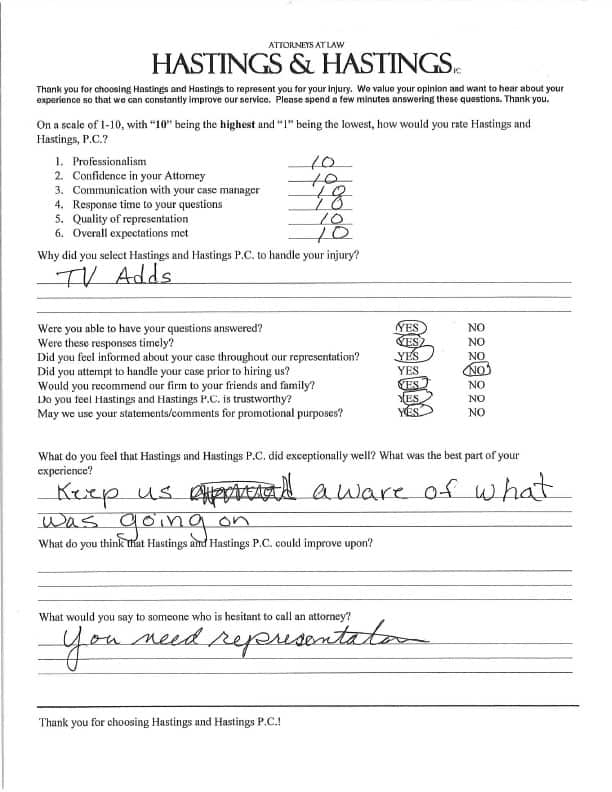 ATTORNEYS AT LAW
HASTINGS & HASTINGS P.C.
Thank you for choosing Hastings and Hastings to represent you for your injury. We value your opinion and want to hear about your
experience so that we can constantly improve our service. Please spend a few minutes answering these questions. Thank you.
On a scale of 1-10, with “10” being the highest and “1” being the lowest, how would you rate Hastings and
Hastings, P.C.?
1. Professionalism 10
2. Confidence in your Attorney 10
3. Communication with your case manager 10
4. Response time to your questions 10
5. Quality of representation 10
6. Overall expectations met 10
Why did you select Hastings and Hastings P.C. to handle your injury?
TV Adds
Were you able to have your questions answered? YES NO
Were these responses timely? YES NO
Did you feel informed about your case throughout our representation? YES NO
Did you attempt to handle your case prior to hiring us? YES NO
Would you recommend our firm to your friends and family? YES NO
Do you feel Hastings and Hastings P.C. is trustworthy? YES NO
May we use your statements/comments for promotional purposes? YES NO
What do you feel that Hastings and Hastings P.C. did exceptionally well? What was the best part of your
experience?
Keep us aware of what
was going on
What do you think that Hastings and Hastings P.C. could improve upon?
What would you say to someone who is hesitant to call an attorney?
You need representation
Thank you for choosing Hastings and Hastings P.C.!